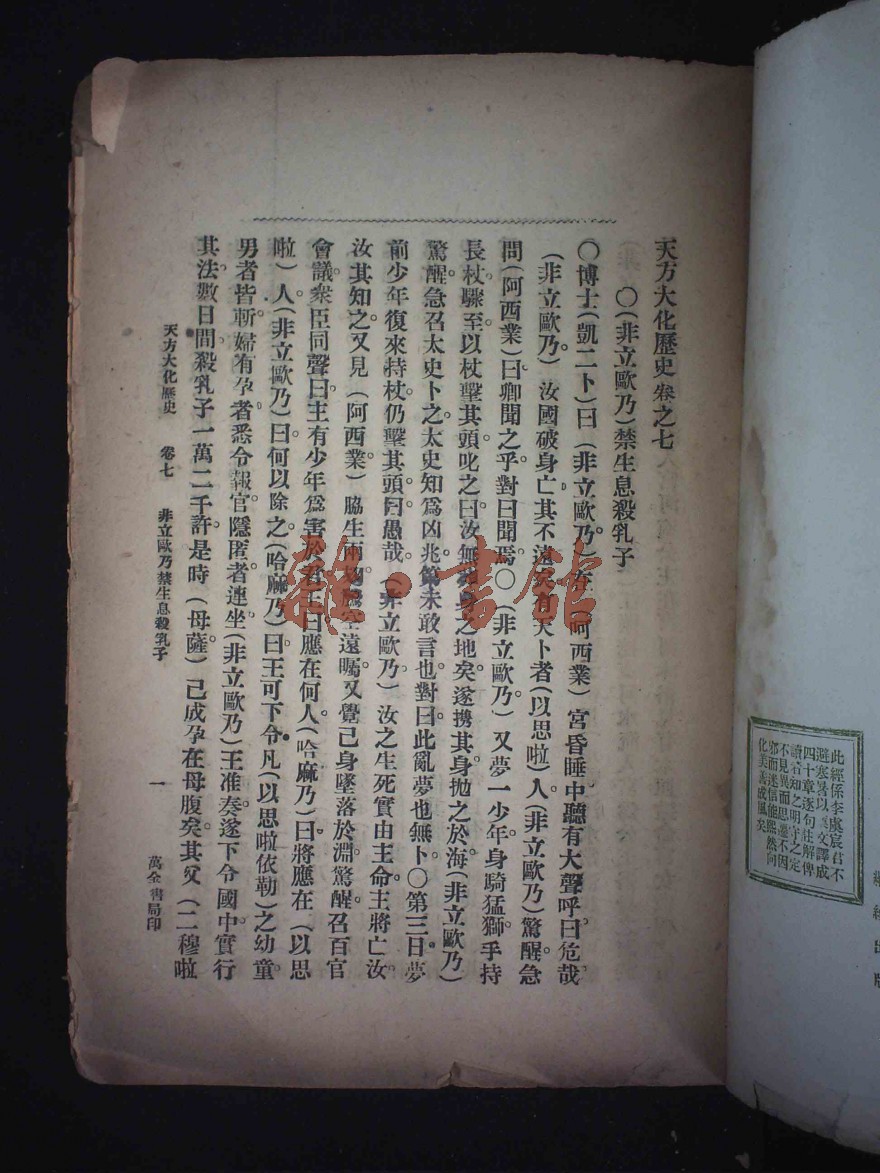 天方大化歷史卷之七
〇(非立歐乃)禁生息殺乳子
〇博士(凱二卜)曰(非立歐乃)在(阿西業)宮昏睡中聽有大聲呼曰危哉
(非立歐乃)汝國破身亡其不遠矣有天卜者(以思啦)人(非立歐乃)驚醒急
問(阿西業)曰卿聞之乎對曰聞焉〇(非立歐乃)又夢一少年身騎猛獅手持
長杖驟至以杖擊其頭叱之曰汝無 身之地矣遂携其身拋之於海(非立歐乃)
驚醒急召太史卜之太史知為凶兆第未敢言也對曰此亂夢也無卜〇第三日夢
前少年復來持杖仍擊其頭曰愚哉(非立歐乃)汝之生死實由主命主將亡汝
汝其知之又見(阿西業)脇生兩翅騰空遠矚又覺己身墜落於淵驚醒召百官
會議衆臣同聲曰主有少年為害於君王曰應在何人(哈麻乃)曰將應在(以思
啦)人(非立歐乃)曰何以除之(哈麻乃)曰王可下令凡(以思啦依勒)之幼童
男者皆斬婦有孕者悉令報官隱匿者連坐(非立歐乃)王准奏遂下令國中實行
其法數日間殺乳子一萬二千許是時(母薩)已成孕在母腹矣其父(二穆啦
天方大化歷史 卷七 非立歐乃禁生息殺乳子 一 萬全書局印
雜·書館
此經係李虞宸君不
避寒暑以漢文譯成
四十章逐句注解俾
讀者知之明守之定
不見異而思遷不因
邪而迷信能熙然向
化美善成風矣
經 出版